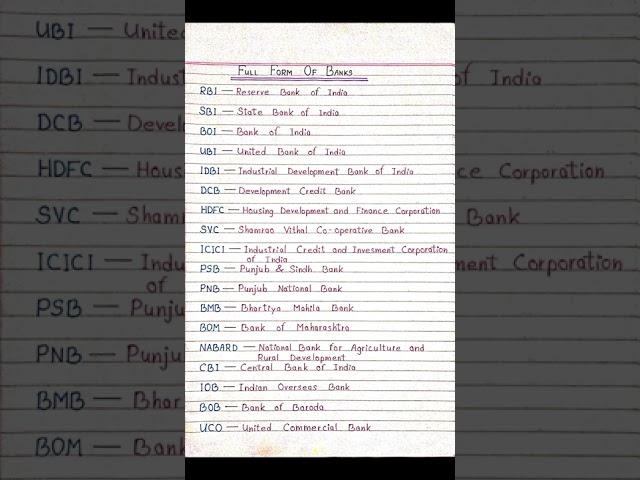 FULL FORM OF BANKS
RBI — Reserve Bank of India
SBI — State Bank of India
BOI — Bank of India
UBI — United Bank of India
IDBI — Industrial Development Bank of India
DCB — Development Credit Bank
HDFC — Housing Development and Finance Corporation
SVC — Shamrao Vithal Co-operative Bank
ICICI — Industrial Credit and Invesment Corporation
of India
PSB — Punjub & Sindh Bank
PNB — Punjub National Bank
BMB — Bhartiya Mahila Bank
BOM — Bank of Maharashtra
NABARD — National Bank for Agriculture and
Rural Development
CBI — Central Bank of India
IOB — Indian Overseas Bank
BOB — Bank of Baroda
UCO — United Commercial Bank
UBI — United
IDBI — Indust
of India
DCB — Devel
HDFC — Hous
ce Corporation
SVC — Sham
Bank
ICICI — Indu
ment Corporation
of
PSB — Punju
PNB — Punju
BMB — Bhar
BOM — Bank